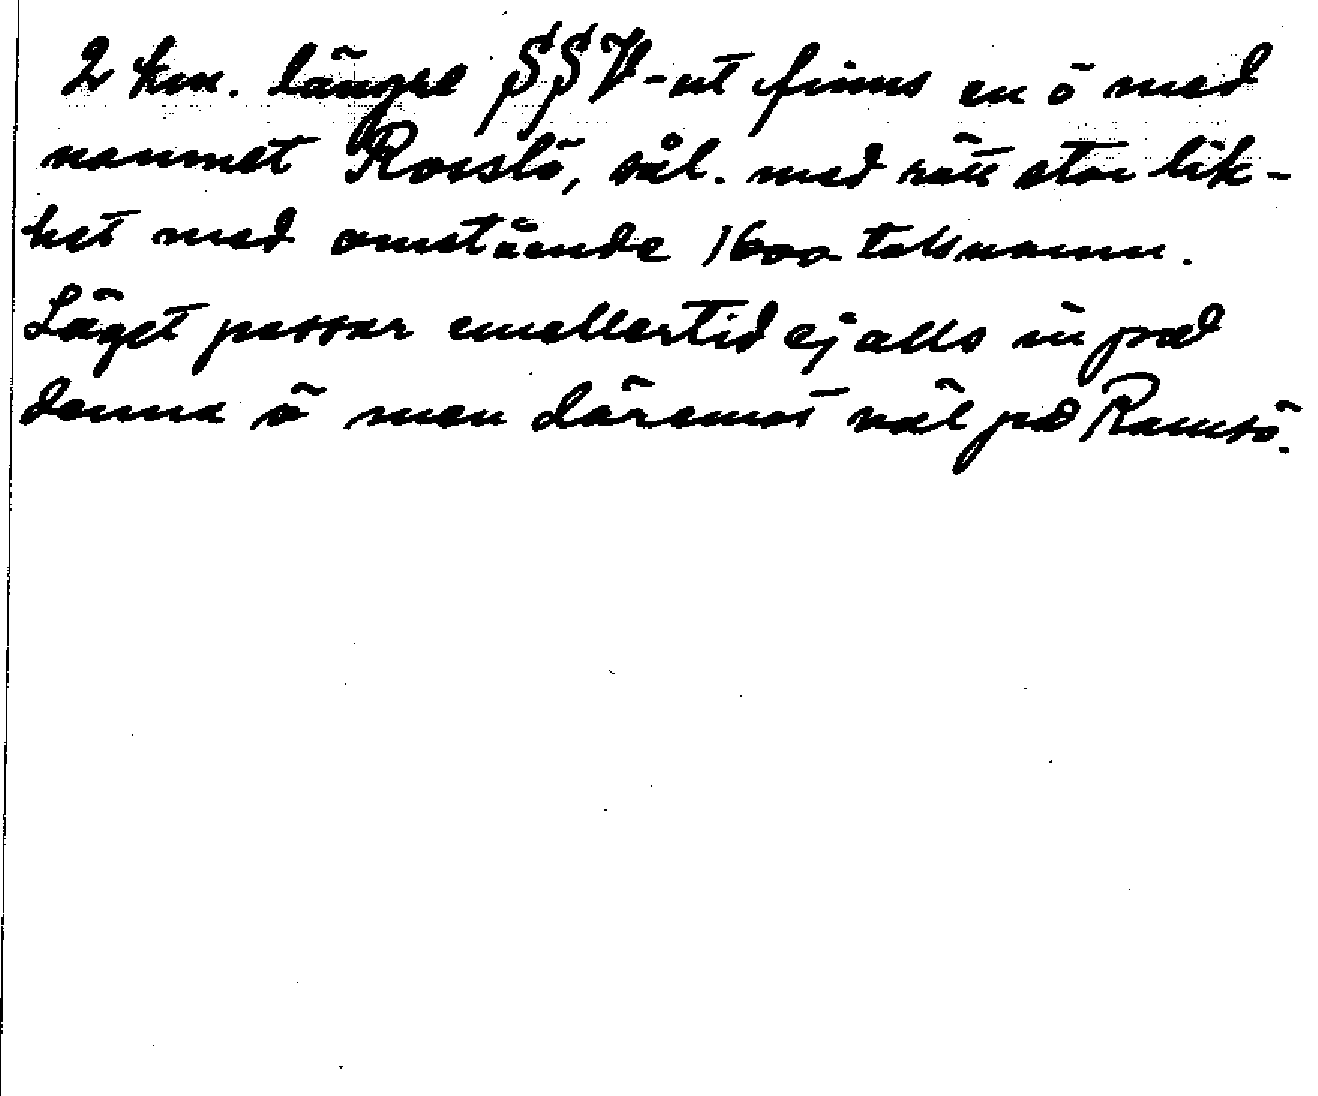 2 km. längre SSV-ut finns en ö med
namnet Rosslö, sål. med rätt stor lik-
het med omstående 1600 talsnamn.
Läget passar emellertid ej alls in på
denna ö men däremot väl på Ramsö.